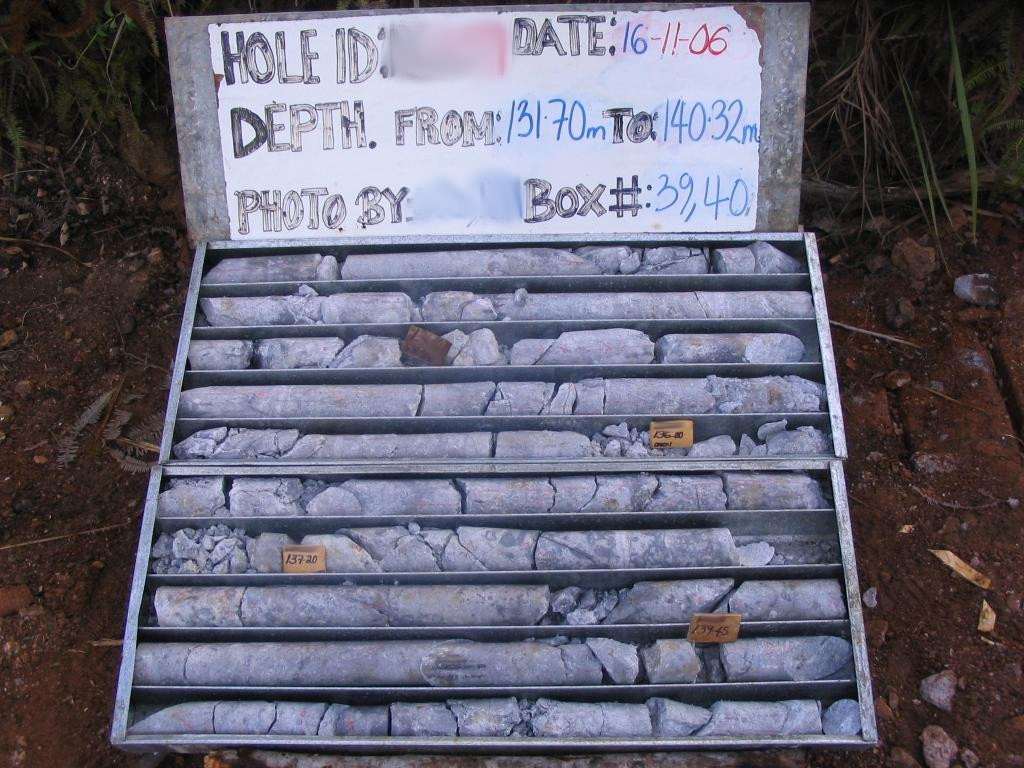 HOLE ID: DATE: 16-11-06
DEPTH. FROM: 131.70m TO: 140.32m
PHOTO BY: BOX #: 39,40
136.00
137.20
139.45